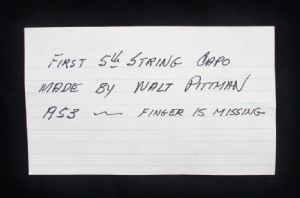 FIRST 5th STRING CAPO
MADE BY WALT PITTMAN
A53 — FINGER IS MISSING